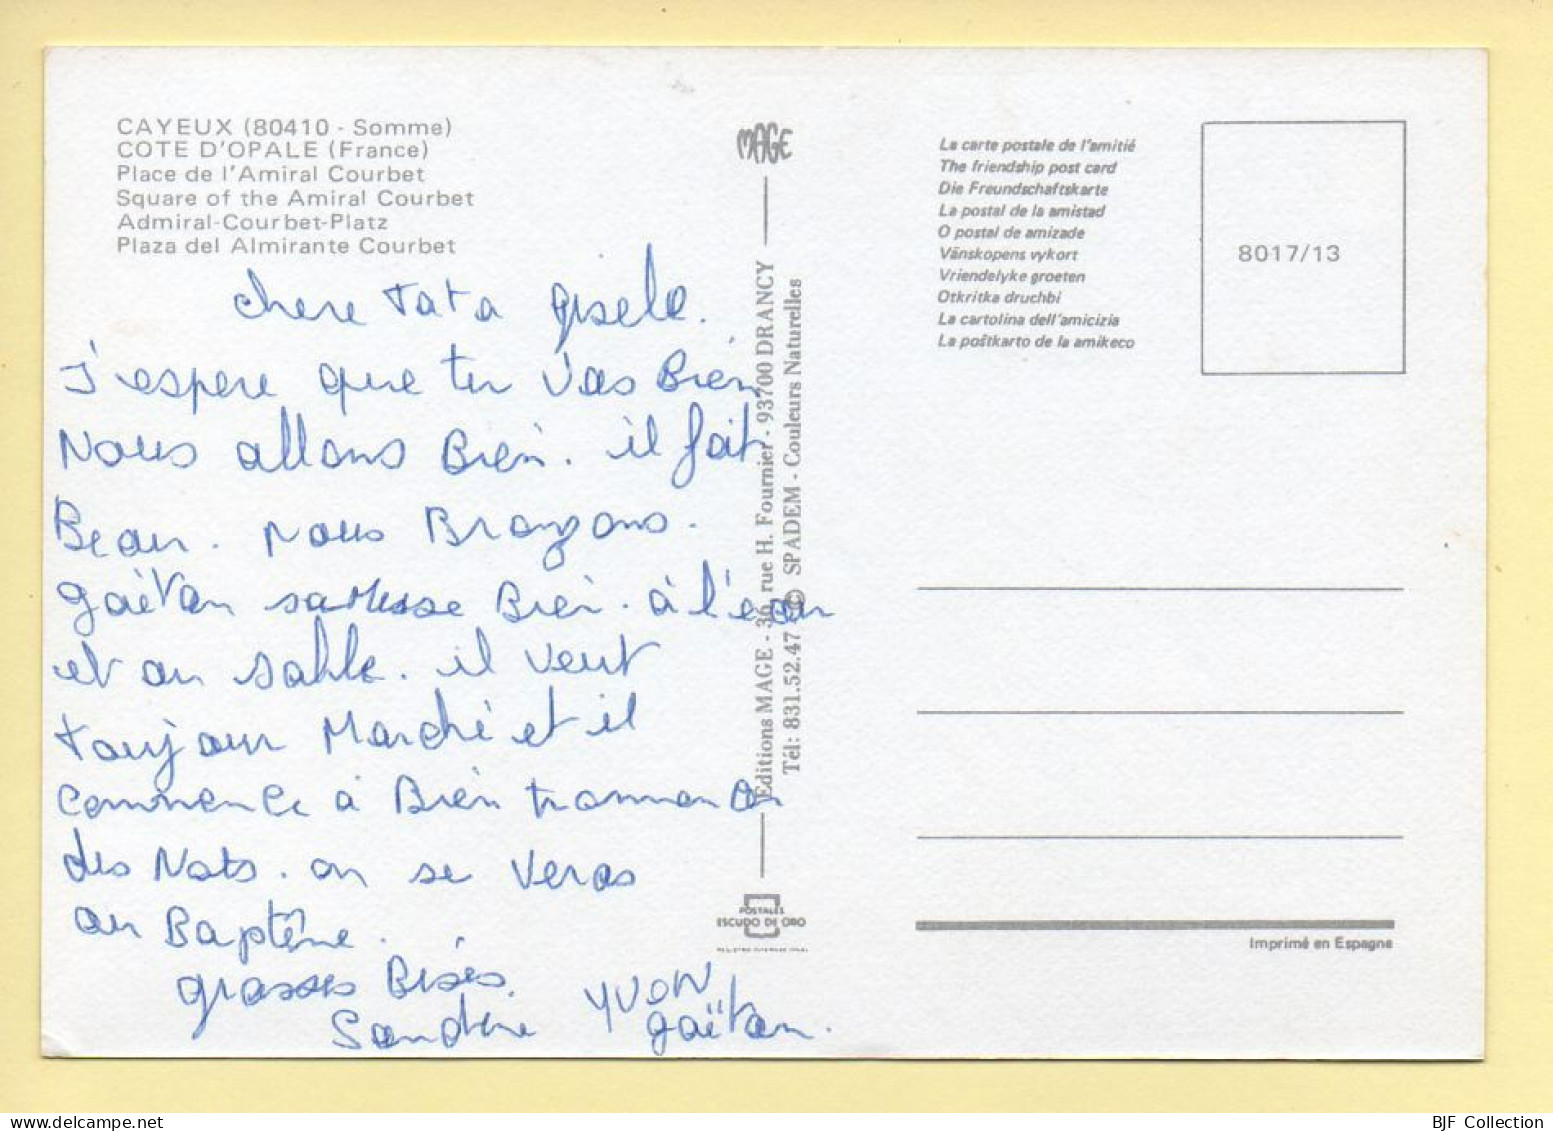 CAYEUX (80410 - Somme)
COTE D'OPALE (France)
Place de l'Amiral Courbet
Square of the Amiral Courbet
Admiral-Courbet-Platz
Plaza del Almirante Courbet
chere tata gisele.
J'espere que tu vas Bien
Nous allons Bien. il fait
Beau. nous Bronzons.
gaëtan Bien. à l'eau
et au sable. il veut
toujour Marché et il
commence à Bien
des Nots. on se veras
au Baptême.
grosses Bises.
Sandrine YVON
gaëtan.
MAGE
Editions MAGE - 36, rue H. Fournier - 93700 DRANCY
Tél: 831.52.47 © SPADEM - Couleurs Naturelles
POSTALES
ESCUDO DE ORO
La carte postale de l'amitié
The friendship post card
Die Freundschaftskarte
La postal de la amistad
O postal de amizade
Vänskopens vykort
Vriendelyke groeten
Otkritka druchbi
La cartolina dell'amicizia
La poŝtkarto de la amikeco
8017/13
Imprimé en Espagne
BJF Collection